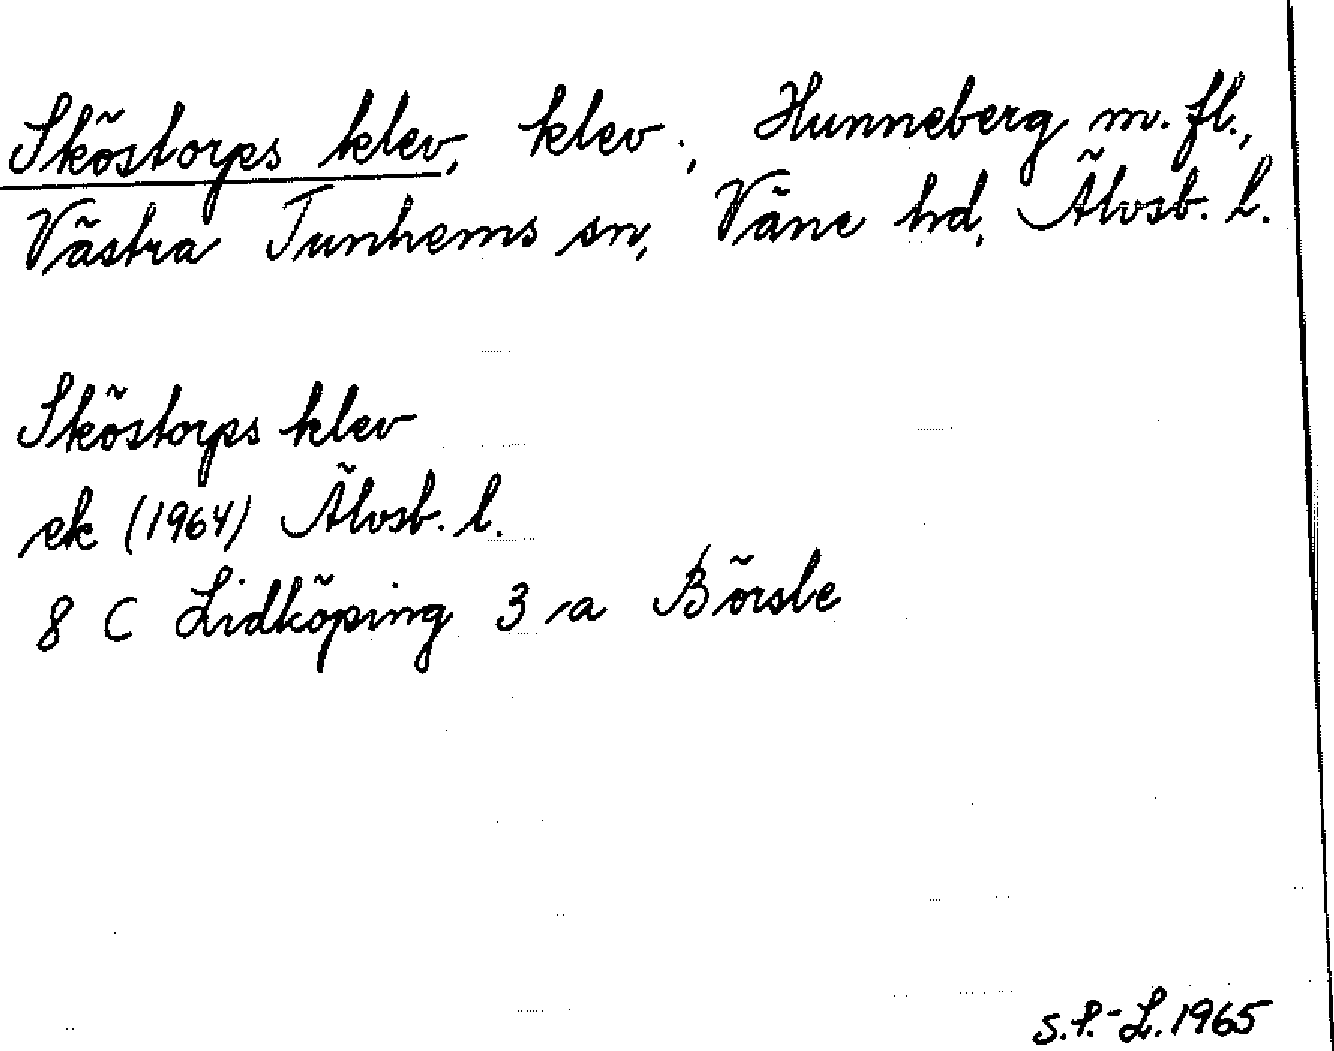 Sköstorps klev, klev., Hunneberg m. fl.,
Västra Tunhems sn, Väne hd, Älvsb. l.
Sköstorps klev
ek (1964) Älvsb. l.
8 C Lidköping 3 a Börsle
S.P.-L. 1965